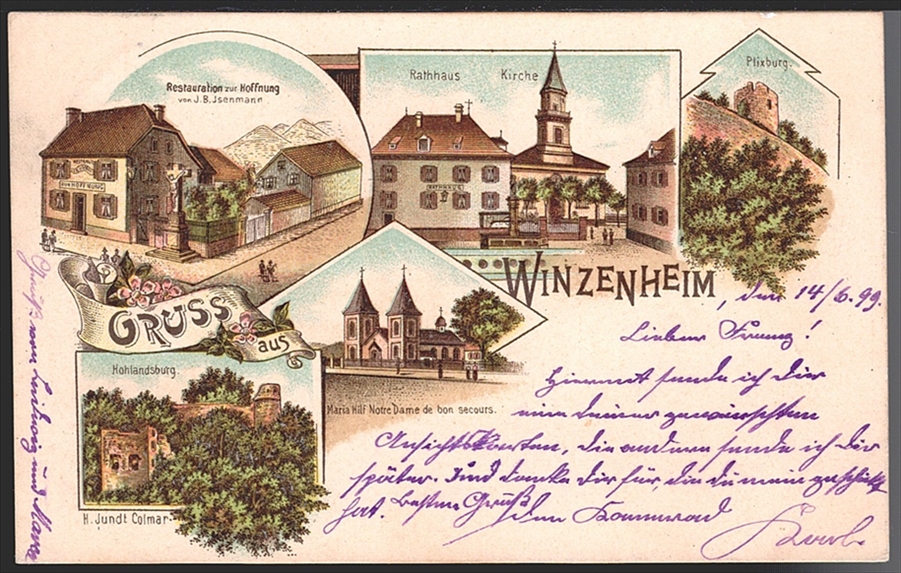 Restauration zur Hoffnung
von J.B. Jsenmann
ZUR HOFFNUNG
Rathhaus
Kirche
RATHHAUS
Plixburg.
GRUSS
aus
WINZENHEIM
Hohlandsburg.
Maria Hilf Notre Dame de bon secours.
H. Jundt Colmar
, den 14/6. 99.
Lieber Franz!
Hiermit sende ich dir
eine deiner gewünschten
Ansichtskarten, die andern sende ich dir
später. Und danke dir für, die du mir geschickt
hat. Besten Gruß
dein Kammerad
Karl.
Gruß von Ludwig und Marie